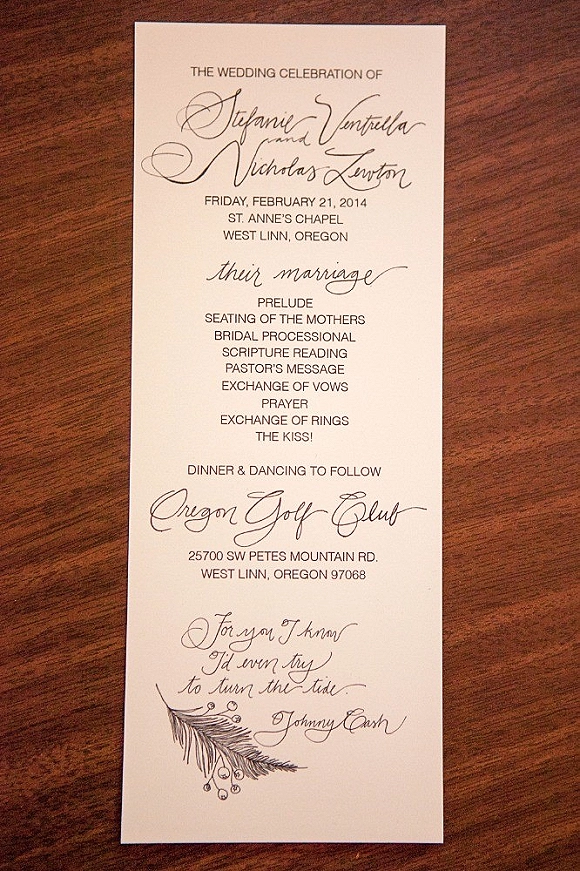 THE WEDDING CELEBRATION OF
Stefanie Ventrella
and
Nicholas Lewton
FRIDAY, FEBRUARY 21, 2014
ST. ANNE'S CHAPEL
WEST LINN, OREGON
their marriage
PRELUDE
SEATING OF THE MOTHERS
BRIDAL PROCESSIONAL
SCRIPTURE READING
PASTOR'S MESSAGE
EXCHANGE OF VOWS
PRAYER
EXCHANGE OF RINGS
THE KISS!
DINNER & DANCING TO FOLLOW
Oregon Golf Club
25700 SW PETES MOUNTAIN RD.
WEST LINN, OREGON 97068
For you I know
I'd even try
to turn the tide.
Johnny Cash